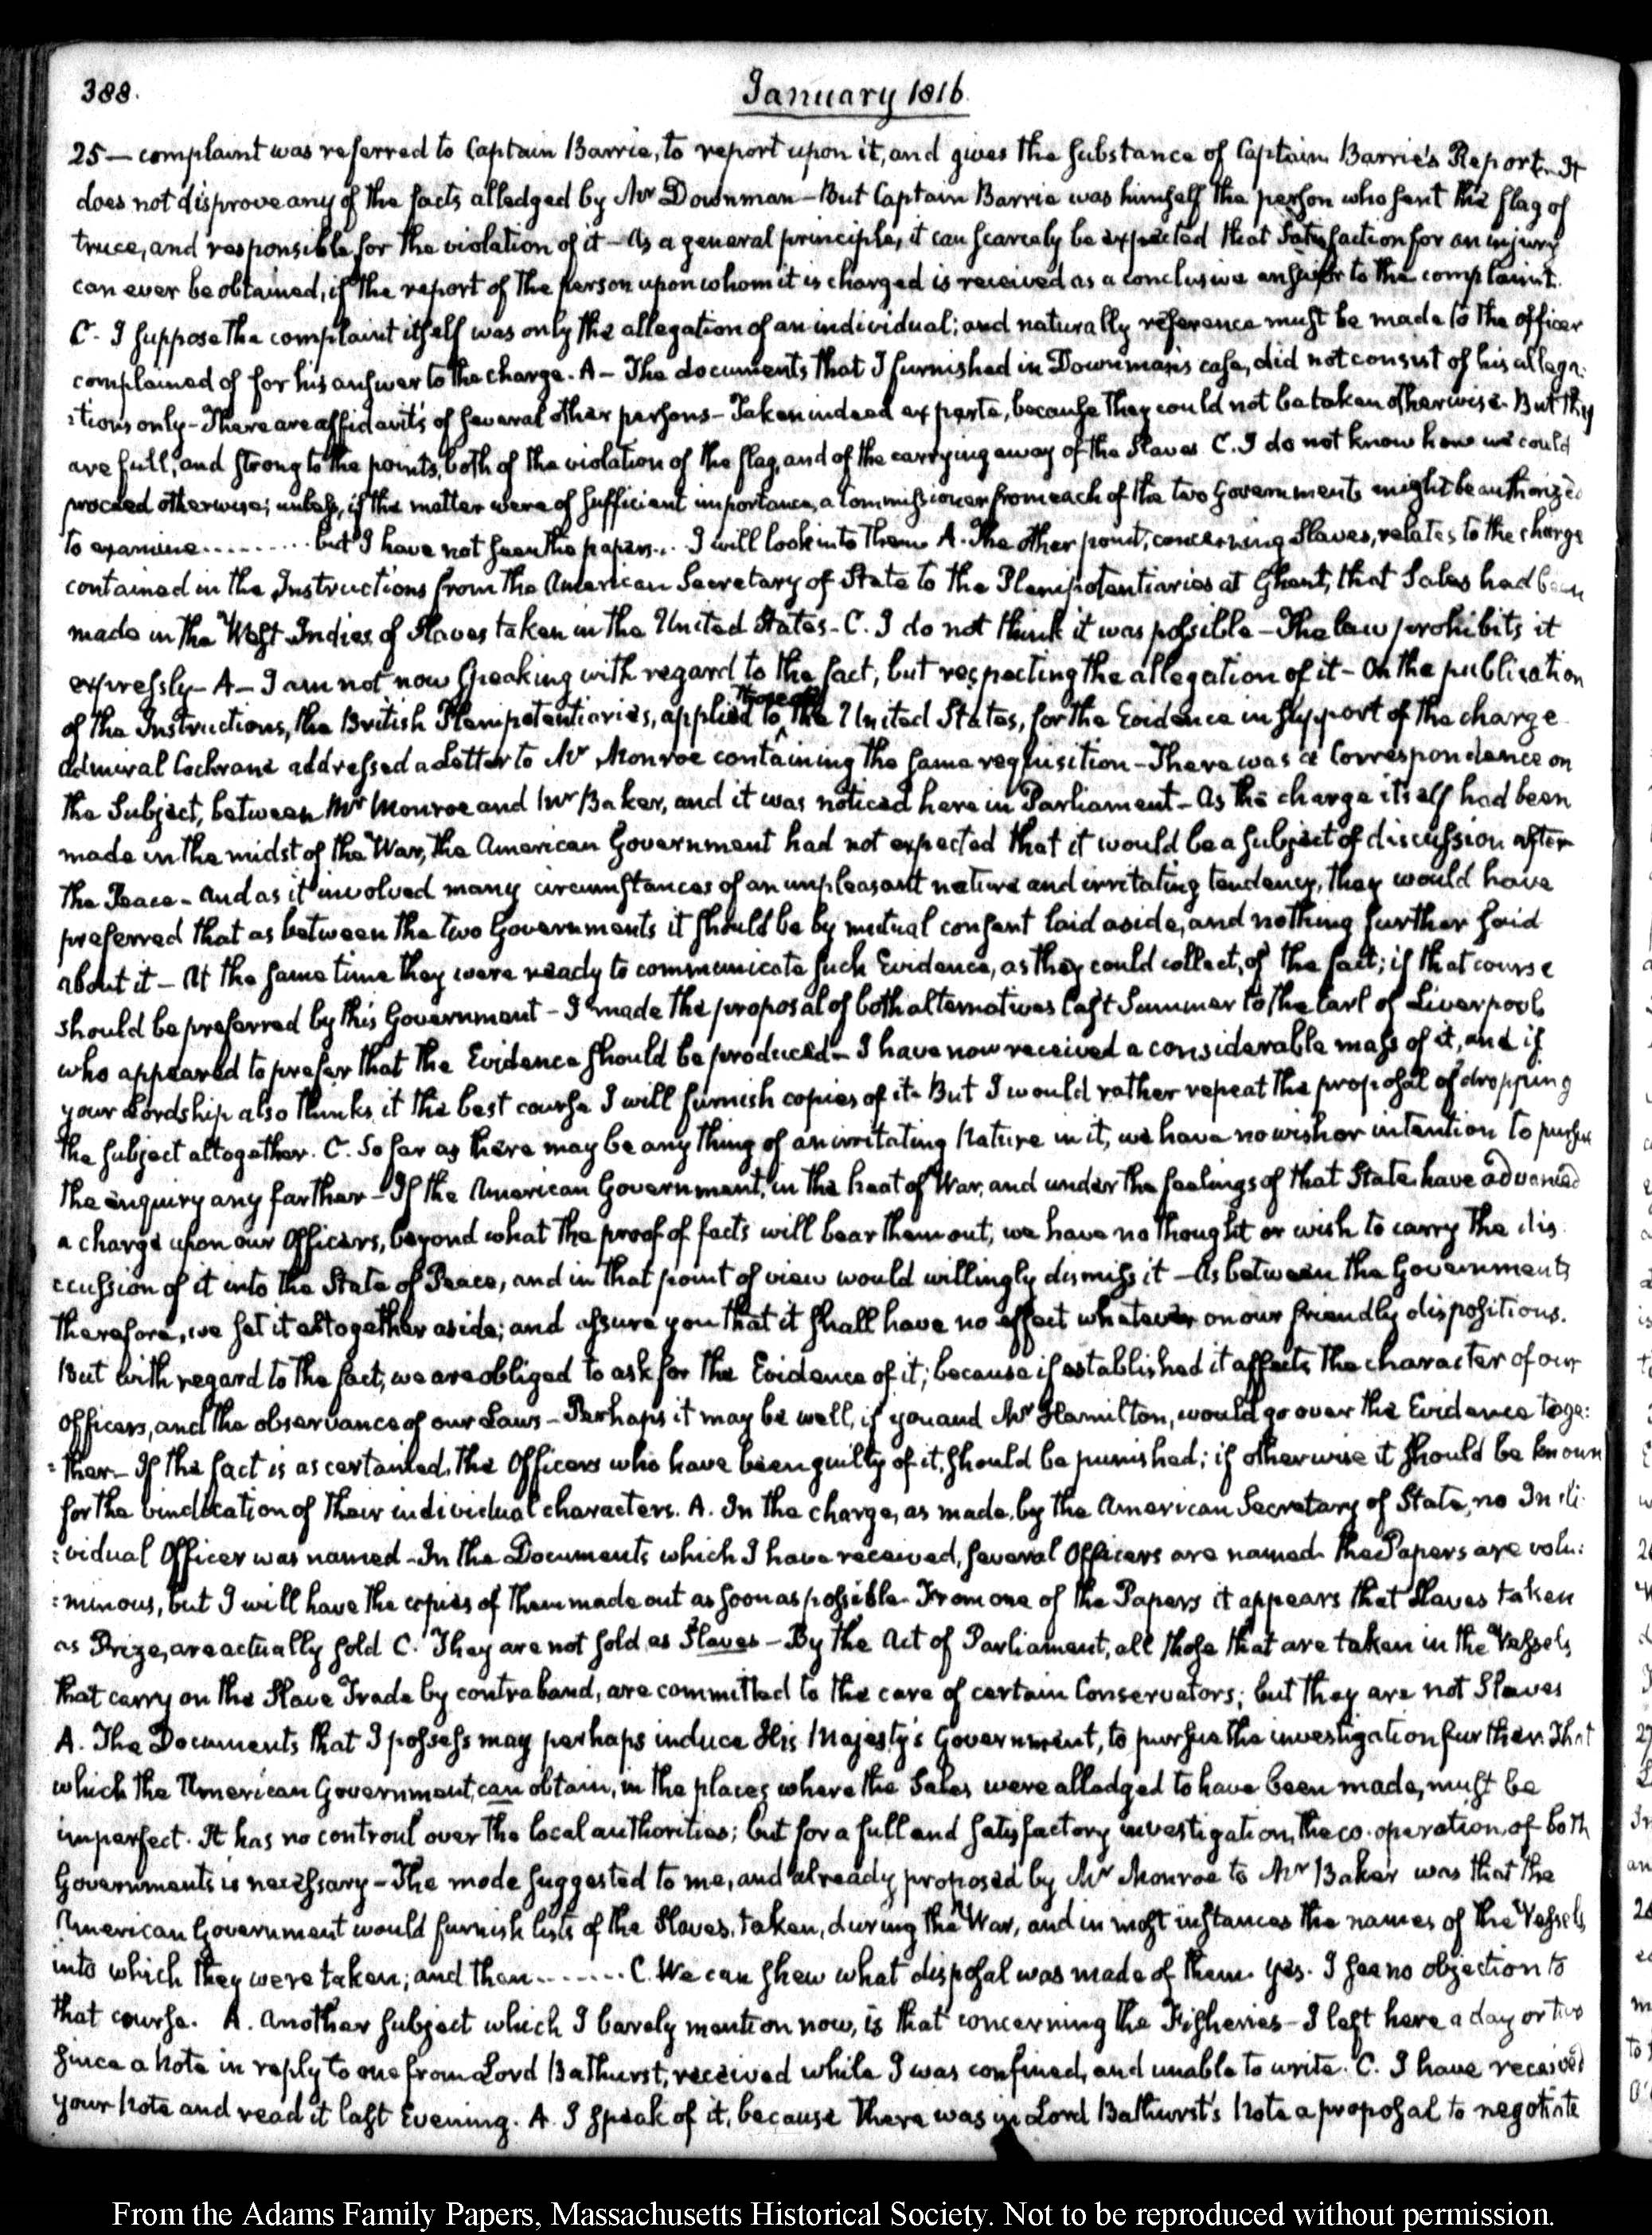 388.
January 1816.
25 — complaint was referred to Captain Barrie, to report upon it, and gives the substance of Captain Barrie's Report. It
does not disprove any of the facts alledged by Mr Downman — But Captain Barrie was himself the person who sent the flag of
truce, and responsible for the violation of it — As a general principle, it can scarcely be expected that satisfaction for an injury
can ever be obtained, if the report of the person upon whom it is charged is received as a conclusive answer to the complaint.
C. I suppose the complaint itself was only the allegation of an individual; and naturally reference must be made to the officer
complained of for his answer to the charge. A — The documents that I furnished in Downman's case, did not consist of his allega:
:tions only — There are affidavits of several other persons — Taken indeed ex parte, because they could not be taken otherwise. But they
are full, and strong to the points, both of the violation of the flag, and of the carrying away of the Slaves. C. I do not know how we could
proceed otherwise; unless, if the matter were of sufficient importance, a Commissioner from each of the two Governments might be authorized
to examine.......... but I have not seen the papers... I will look into them. A. The other point, concerning Slaves, relates to the charge
contained in the Instructions from the American Secretary of State to the Plenipotentiaries at Ghent, that Sales had been
made in the West-Indies of Slaves taken in the United States — C. I do not think it was possible — The law prohibits it
expressly — A — I am not now speaking with regard to the fact, but respecting the allegation of it — On the publication
of the Instructions, the British Plenipotentiaries, applied to those of the United States, for the Evidence in support of the charge
Admiral Cochrane addressed a Letter to Mr Monroe containing the same requisition — There was a Correspondence on
the Subject, between Mr Monroe and Mr Baker, and it was noticed here in Parliament — As the charge itself had been
made in the midst of the War, the American Government had not expected that it would be a subject of discussion after
the Peace — And as it involved many circumstances of an unpleasant nature and irritating tendency, they would have
preferred that as between the two Governments it should be by mutual consent laid aside, and nothing further said
about it — At the same time they were ready to communicate such Evidence, as they could collect, of the fact; if that course
should be preferred by this Government — I made the proposal of both alternatives last Summer to the Earl of Liverpool
who appeared to prefer that the Evidence should be produced — I have now received a considerable mass of it, and if
your Lordship also thinks it the best course I will furnish copies of it — But I would rather repeat the proposal of dropping
the subject altogether. C. So far as there may be any thing of an irritating Nature in it, we have no wish or intention to pursue
the enquiry any farther — If the American Government, in the heat of War, and under the feelings of that State have advanced
a charge upon our Officers, beyond what the proof of facts will bear them out, we have no thought or wish to carry the dis
cussion of it into the State of Peace, and in that point of view would willingly dismiss it — As between the Governments
therefore, we set it altogether aside; and assure you that it shall have no effect whatever on our friendly dispositions.
But with regard to the fact, we are obliged to ask for the Evidence of it; because if established it affects the character of our
Officers, and the observance of our Laws — Perhaps it may be well, if you and Mr Hamilton, would go over the Evidence toge:
:ther — If the fact is ascertained, the Officers who have been guilty of it, should be punished; if otherwise it should be known
for the vindication of their individual characters. A. In the charge, as made, by the American Secretary of State, no Indi:
:vidual Officer was named — In the Documents which I have received, several Officers are named. The Papers are volu:
:minous, but I will have the copies of them made out as soon as possible — From one of the Papers it appears that Slaves taken
as Prize, are actually sold C. They are not sold as Slaves — By the Act of Parliament, all those that are taken in the Vessels
that carry on the Slave Trade by contraband, are committed to the care of certain Conservators; but they are not Slaves
A. The Documents that I possess may perhaps induce His Majesty's Government, to pursue the investigation further. That
which the American Government, can obtain, in the places where the Sales were alledged to have been made, must be
imperfect. It has no controul over the local authorities; but for a full and satisfactory investigation, the co-operation, of both
Governments is necessary — The mode suggested to me, and already proposed by Mr Monroe to Mr Baker was that the
American Government would furnish lists of the Slaves, taken, during the War, and in most instances the names of the Vessels
into which they were taken; and then....... C. We can shew what disposal was made of them. Yes. I see no objection to
that course. A. Another subject which I barely mention now, is that concerning the Fisheries — I left here a day or two
since a Note in reply to one from Lord Bathurst, received while I was confined, and unable to write. C. I have received
your Note and read it last Evening. A. I speak of it, because there was in Lord Bathurst's Note a proposal to negotiate
From the Adams Family Papers, Massachusetts Historical Society. Not to be reproduced without permission.